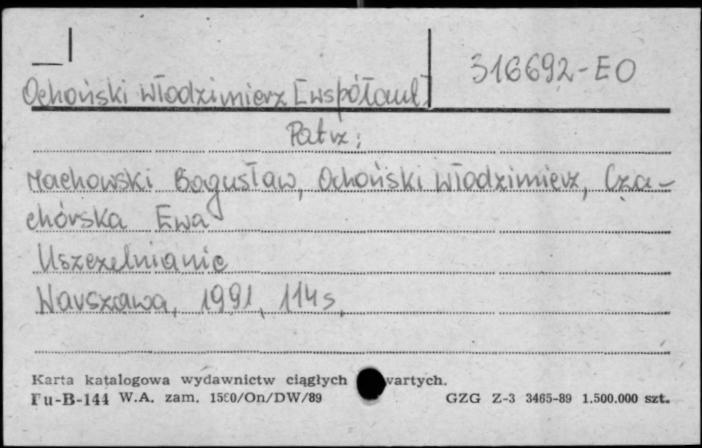 316692-EO
Ochoński Włodzimierz [współaut]
Patrz:
Machowski Bogusław, Ochoński Włodzimierz, Cza-
chórska Ewa
Uszczelnianie
Warszawa, 1991, 114 s.
Karta katalogowa wydawnictw ciągłych wartych.
Pu-B-144 W.A. zam. 1580/On/DW/89 GZG Z-3 3465-89 1.500.000 szt.